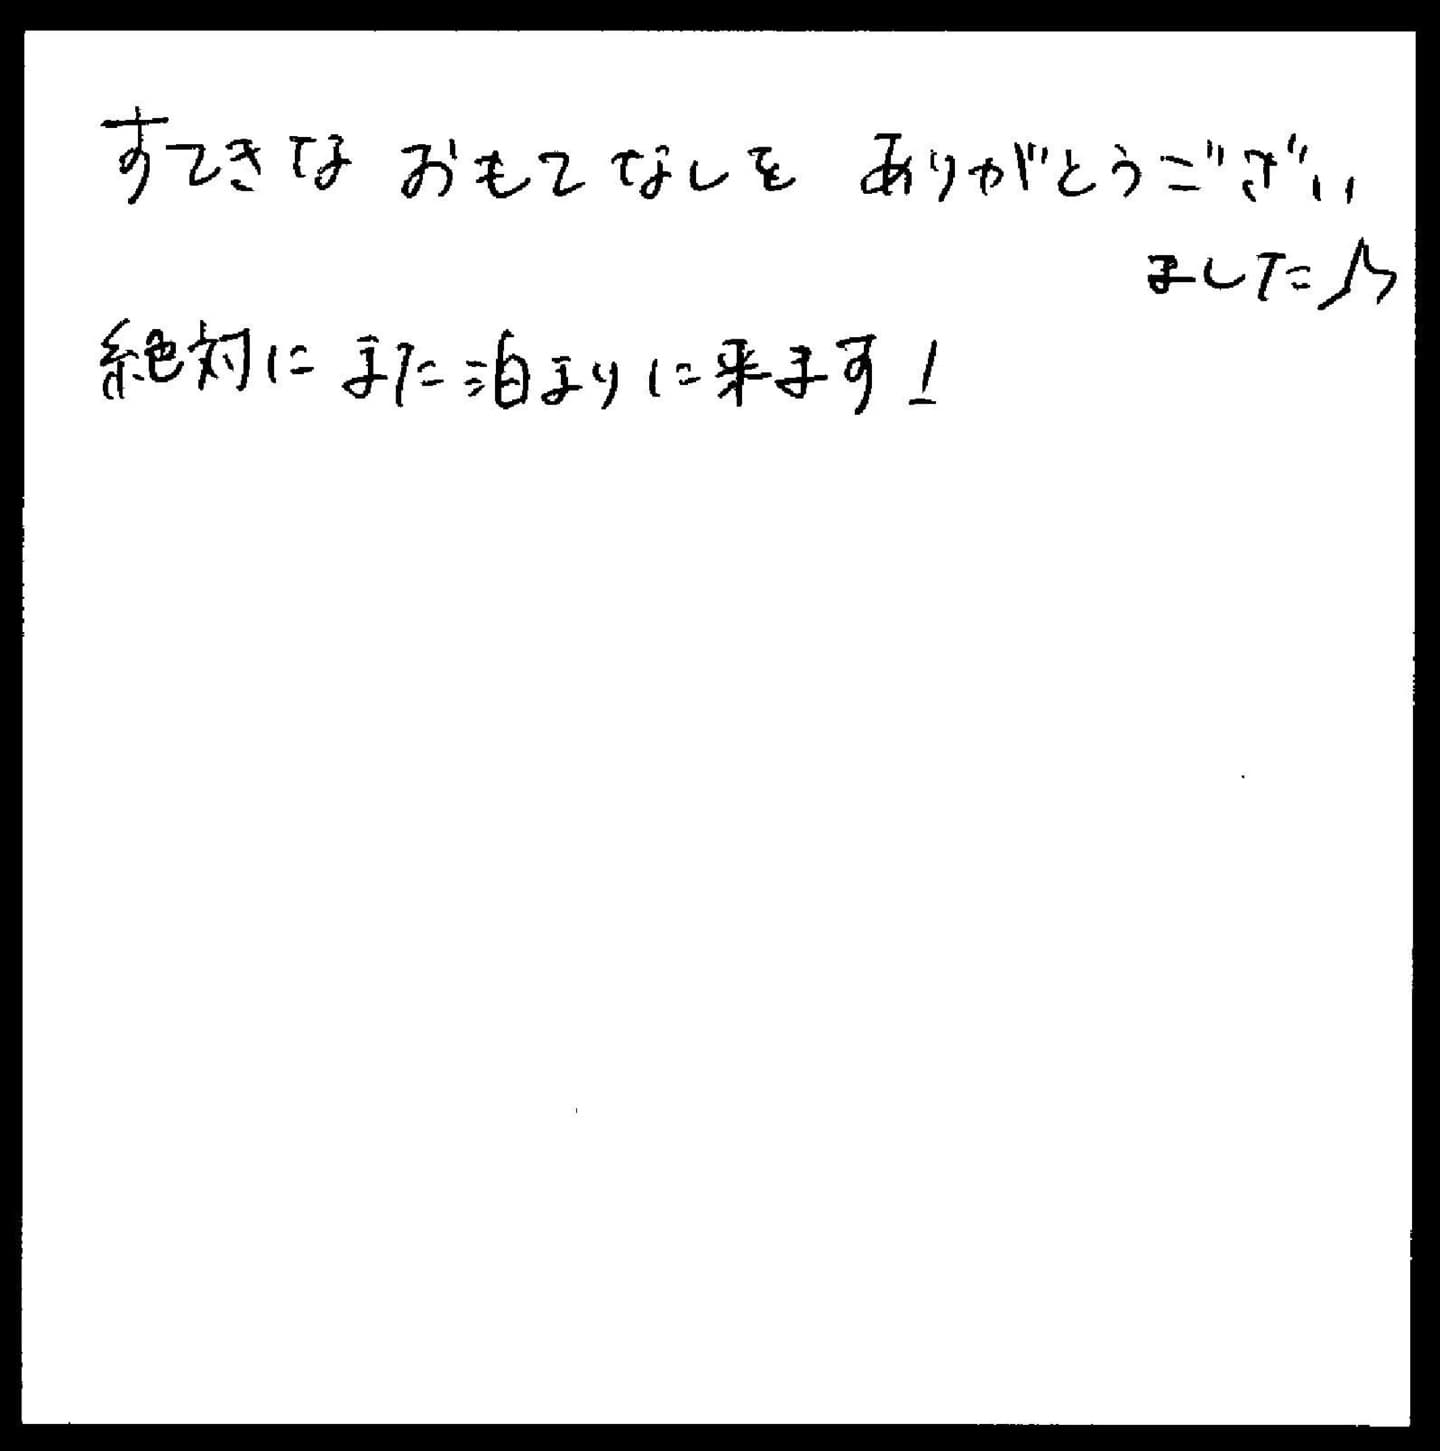 すてきな おもてなしを ありがとうござい
ました♪
絶対に また泊まりに来ます！